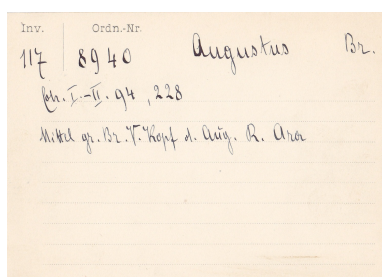 Inv. Ordn.-Nr.
117 8940 Augustus Br.
Coh. I.-II. 94, 228
Mittel gr. Br. V. Kopf d. Aug. R. Ara